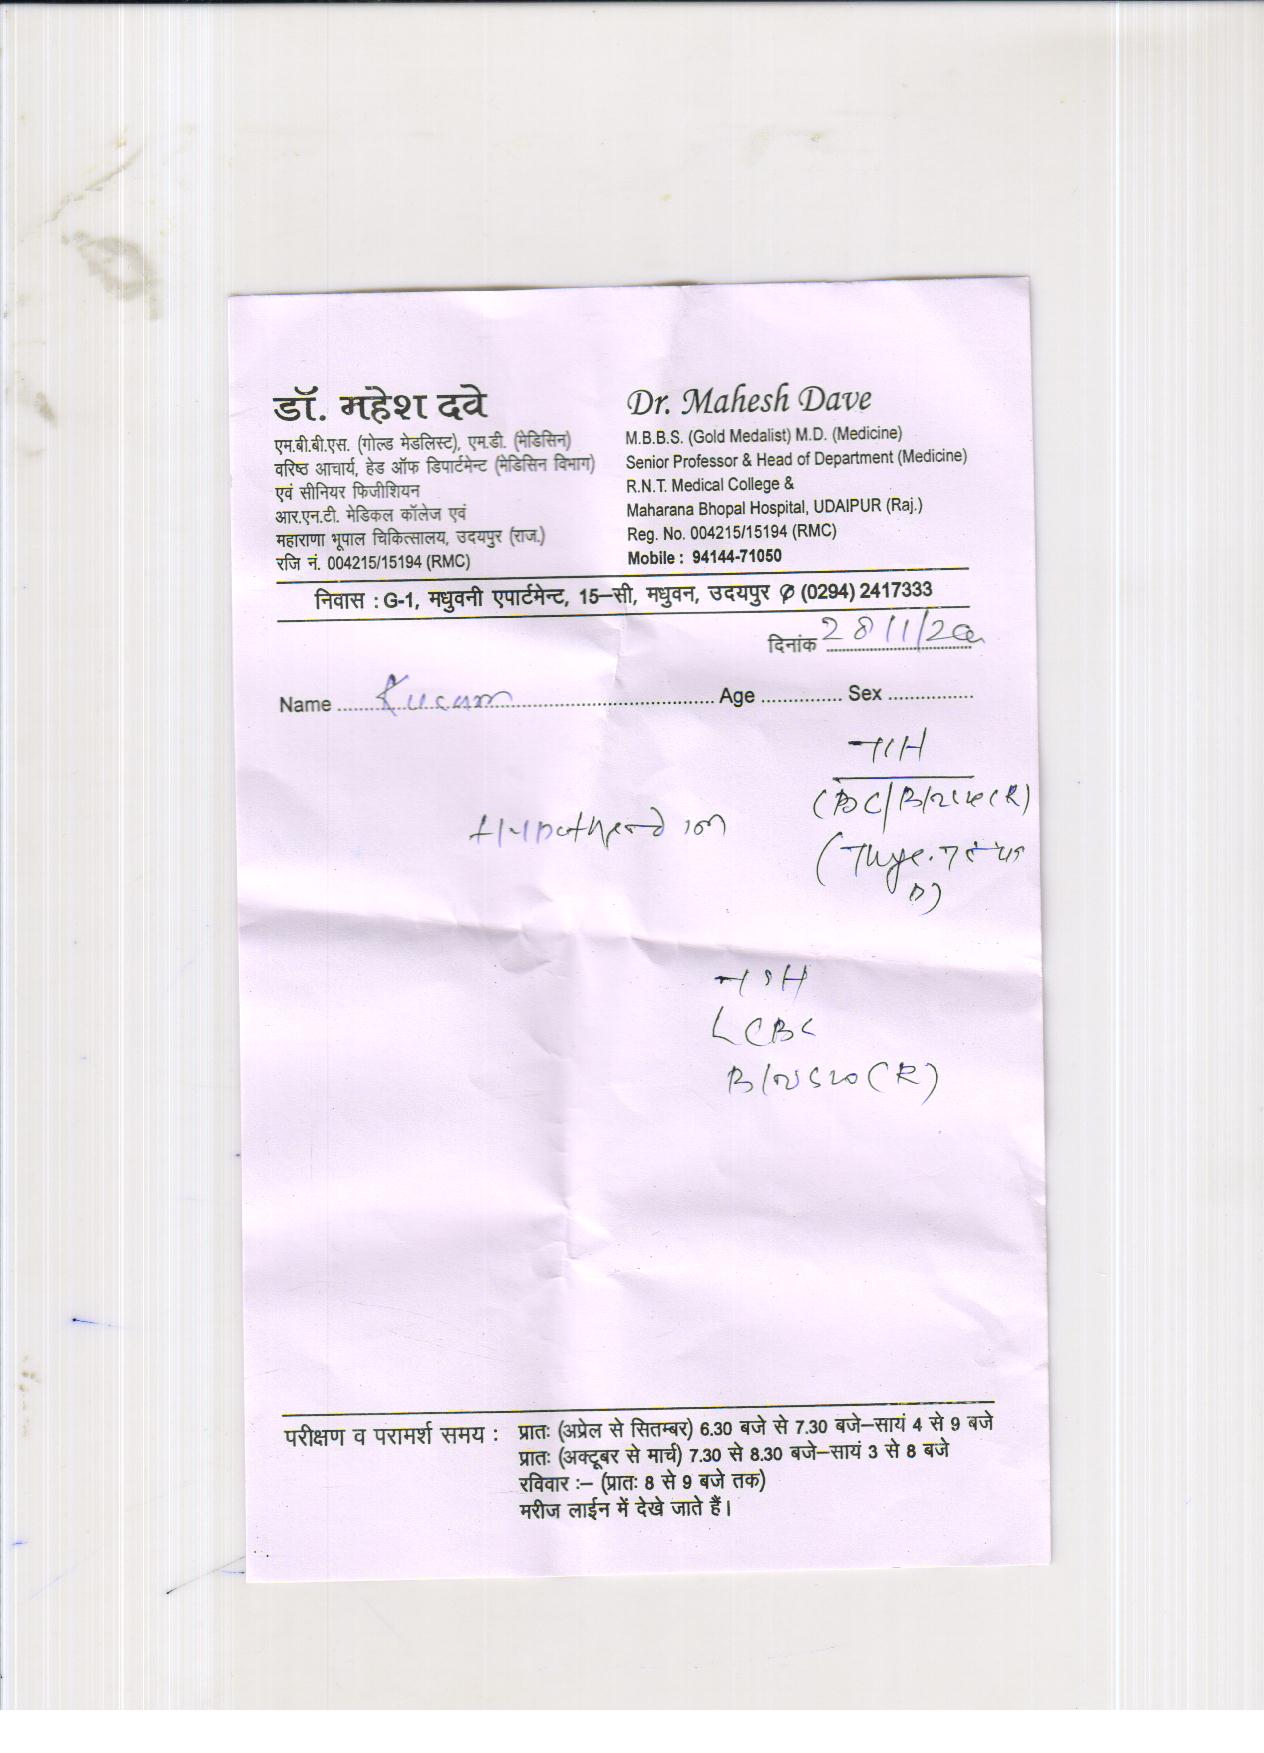 डॉ. महेश दवे
एम.बी.बी.एस. (गोल्ड मेडलिस्ट), एम.डी. (मेडिसिन)
वरिष्ठ आचार्य, हेड ऑफ डिपार्टमेन्ट (मेडिसिन विभाग)
एवं सीनियर फिजीशियन
आर.एन.टी. मेडिकल कॉलेज एवं
महाराणा भूपाल चिकित्सालय, उदयपुर (राज.)
रजि नं. 004215/15194 (RMC)
Dr. Mahesh Dave
M.B.B.S. (Gold Medalist) M.D. (Medicine)
Senior Professor & Head of Department (Medicine)
R.N.T. Medical College &
Maharana Bhopal Hospital, UDAIPUR (Raj.)
Reg. No. 004215/15194 (RMC)
Mobile : 94144-71050
निवास : G-1, मधुवनी एपार्टमेन्ट, 15–सी, मधुवन, उदयपुर ✆ (0294) 2417333
दिनांक 28/11/20
Name Kusum Age Sex
CBC
परीक्षण व परामर्श समय : प्रातः (अप्रेल से सितम्बर) 6.30 बजे से 7.30 बजे–सायं 4 से 9 बजे
प्रातः (अक्टूबर से मार्च) 7.30 से 8.30 बजे–सायं 3 से 8 बजे
रविवार :– (प्रातः 8 से 9 बजे तक)
मरीज लाईन में देखे जाते हैं।